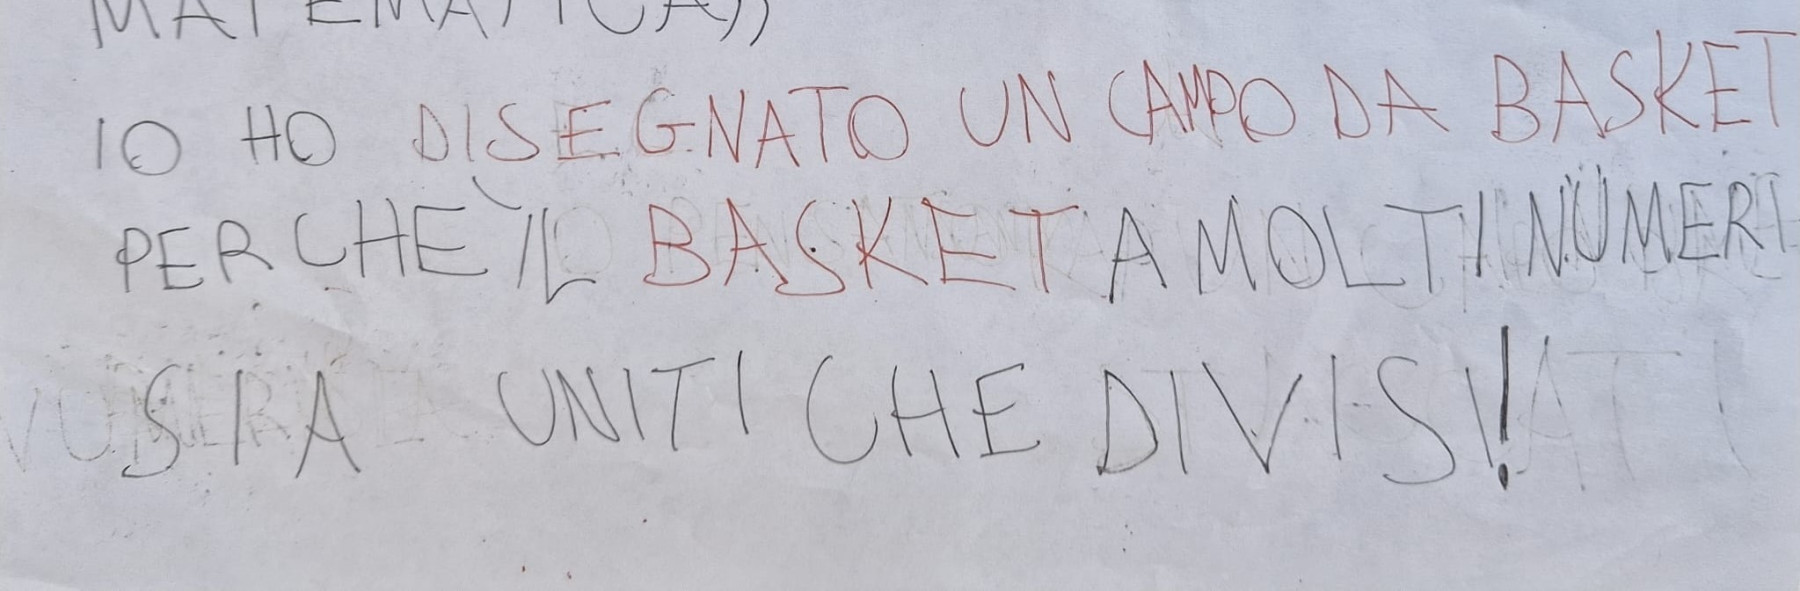 MATEMATICA))
IO HO DISEGNATO UN CAMPO DA BASKET
PERCHE' IL BASKET A MOLTI NUMERI
SIA UNITI CHE DIVISI!